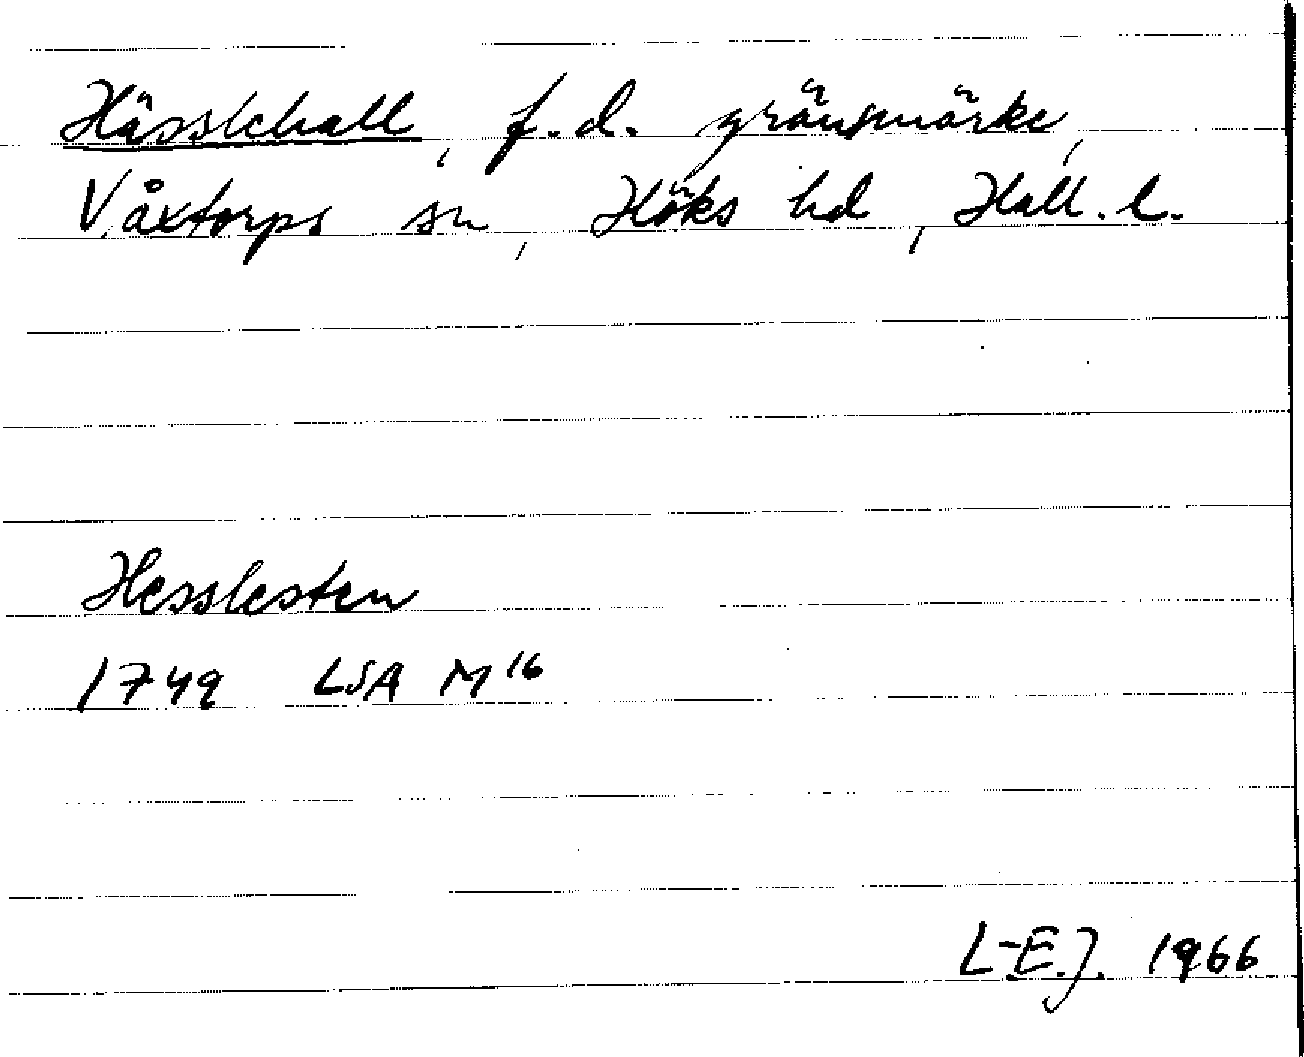 Hässlehall, f.d. gränsmärke,
Våxtorps sn, Höks hd, Hall. l.
Hesslesten
1749 LSA M16
L-E.J. 1966